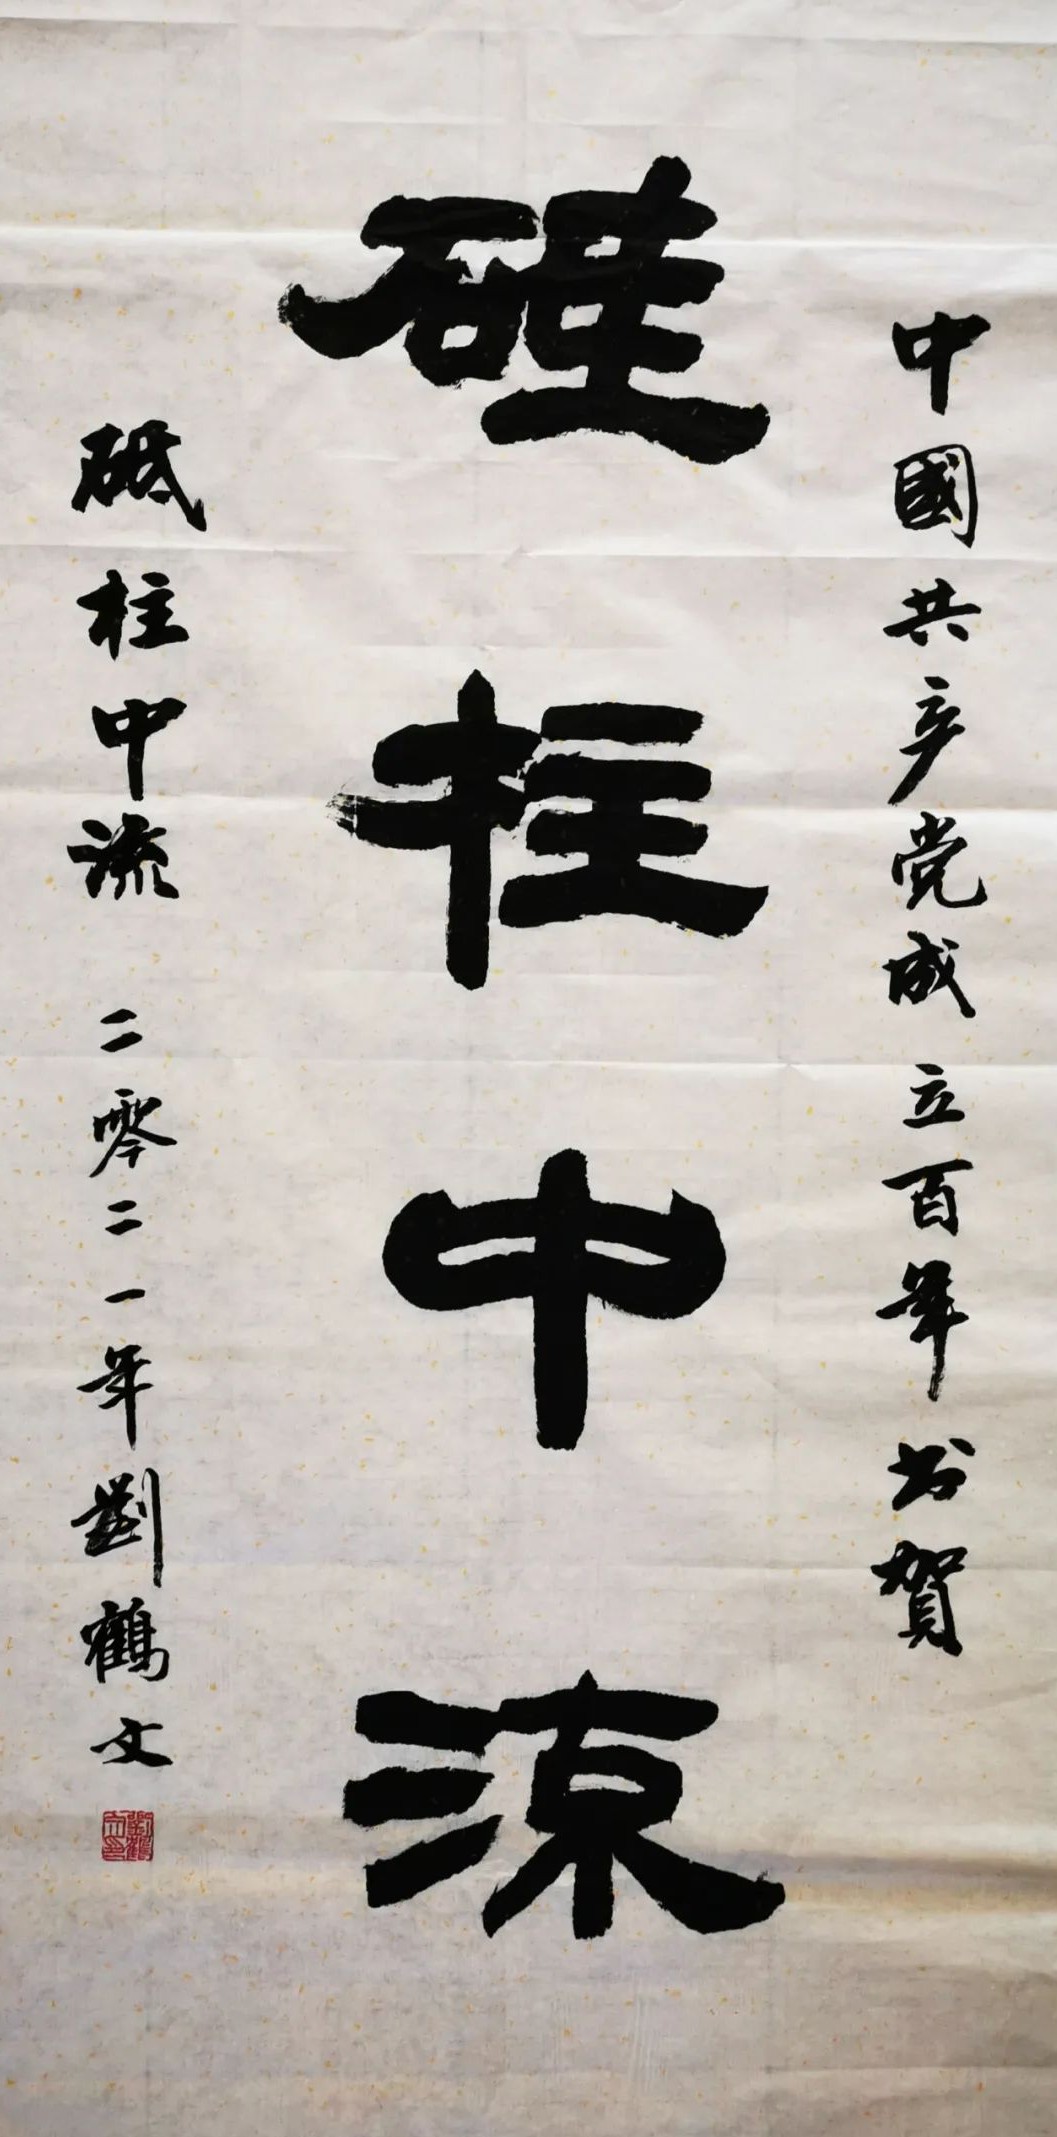 中國共产党成立百年书賀
砥柱中流
砥柱中流 二零二一年劉鶴文
劉鶴文印